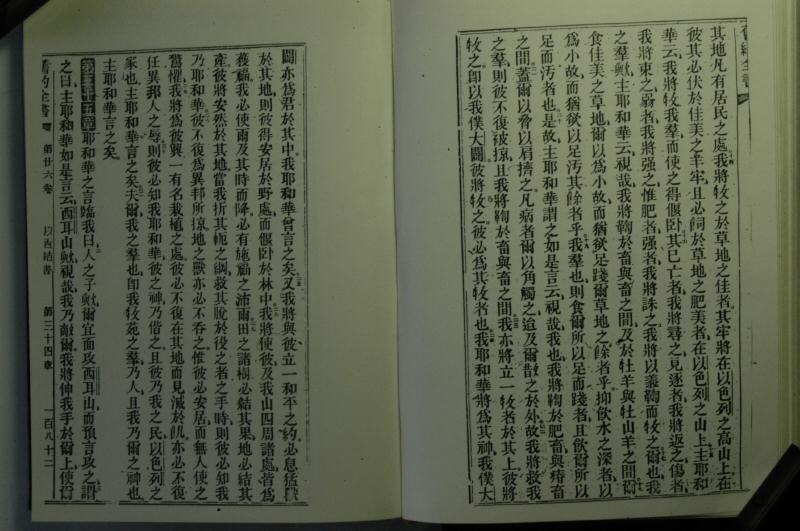 舊約全書
其地凡有居民之處我將牧之於草地之佳者其牢將在以色列之高山上在
彼其必伏於佳美之羊牢且必飼於草地之肥美者在以色列之山上主耶和
華云我將牧我羣而使之得偃卧其已亡者我將尋之見逐者我將返之傷者
我將束之弱者我將强之惟肥者强者我將誅之我將以義鞫而牧之爾也我
之羣歟主耶和華云視哉我將鞫於畜與畜之間及於牡羊與牡山羊之間爾
食佳美之草地爾以爲小故而猶欲足踐爾草地之餘者乎抑飲水之深者以
爲小故而猶欲以足汚其餘者乎我羣也則食爾所以足而踐者且飲爾所以
足而汚者也是故主耶和華謂之如是言云視哉我也我將鞫於肥畜與瘠畜
之間蓋爾以脅以肩擠之凡病者爾以角觸之迨及爾散之於外故我將救我
之羣則彼不復被掠且我將鞫於畜與畜之間我亦將立一牧者於其上彼將
牧之卽以我僕大闢彼將牧之彼必爲其牧者也我耶和華將爲其神我僕大
闢亦爲君於其中我耶和華曾言之矣又我將與彼立一和平之約必息猛獸
於其地則彼得安居於野處而偃卧於林中我將使彼及我山四周諸處皆爲
獲福我必使雨及其時而降必有施福之沛雨田之諸樹必結其果地必結其
產彼將安然於其地當我折其軛之綱救其脫於役之者之手時則彼必知我
乃耶和華彼不復爲異邦所掠地之獸亦必不吞之惟彼必安居而無人使之
驚懼我將爲彼興一有名栽植之處彼必不復在其地而見滅於飢亦必不復
任異邦人之辱則彼必知我耶和華彼之神乃偕之且彼乃我之民以色列之
家也主耶和華言之矣夫爾我之羣也卽我牧苑之羣乃人且我乃爾之神也
主耶和華言之矣
第三十五章耶和華之言臨我曰人之子歟爾宜面攻西耳山而預言攻之謂
之曰主耶和華如是言云西耳山歟視哉我乃敵爾我將伸我手於爾上使爾
舊約全書 第廿六卷 以西結書 第三十四章 一百八十二